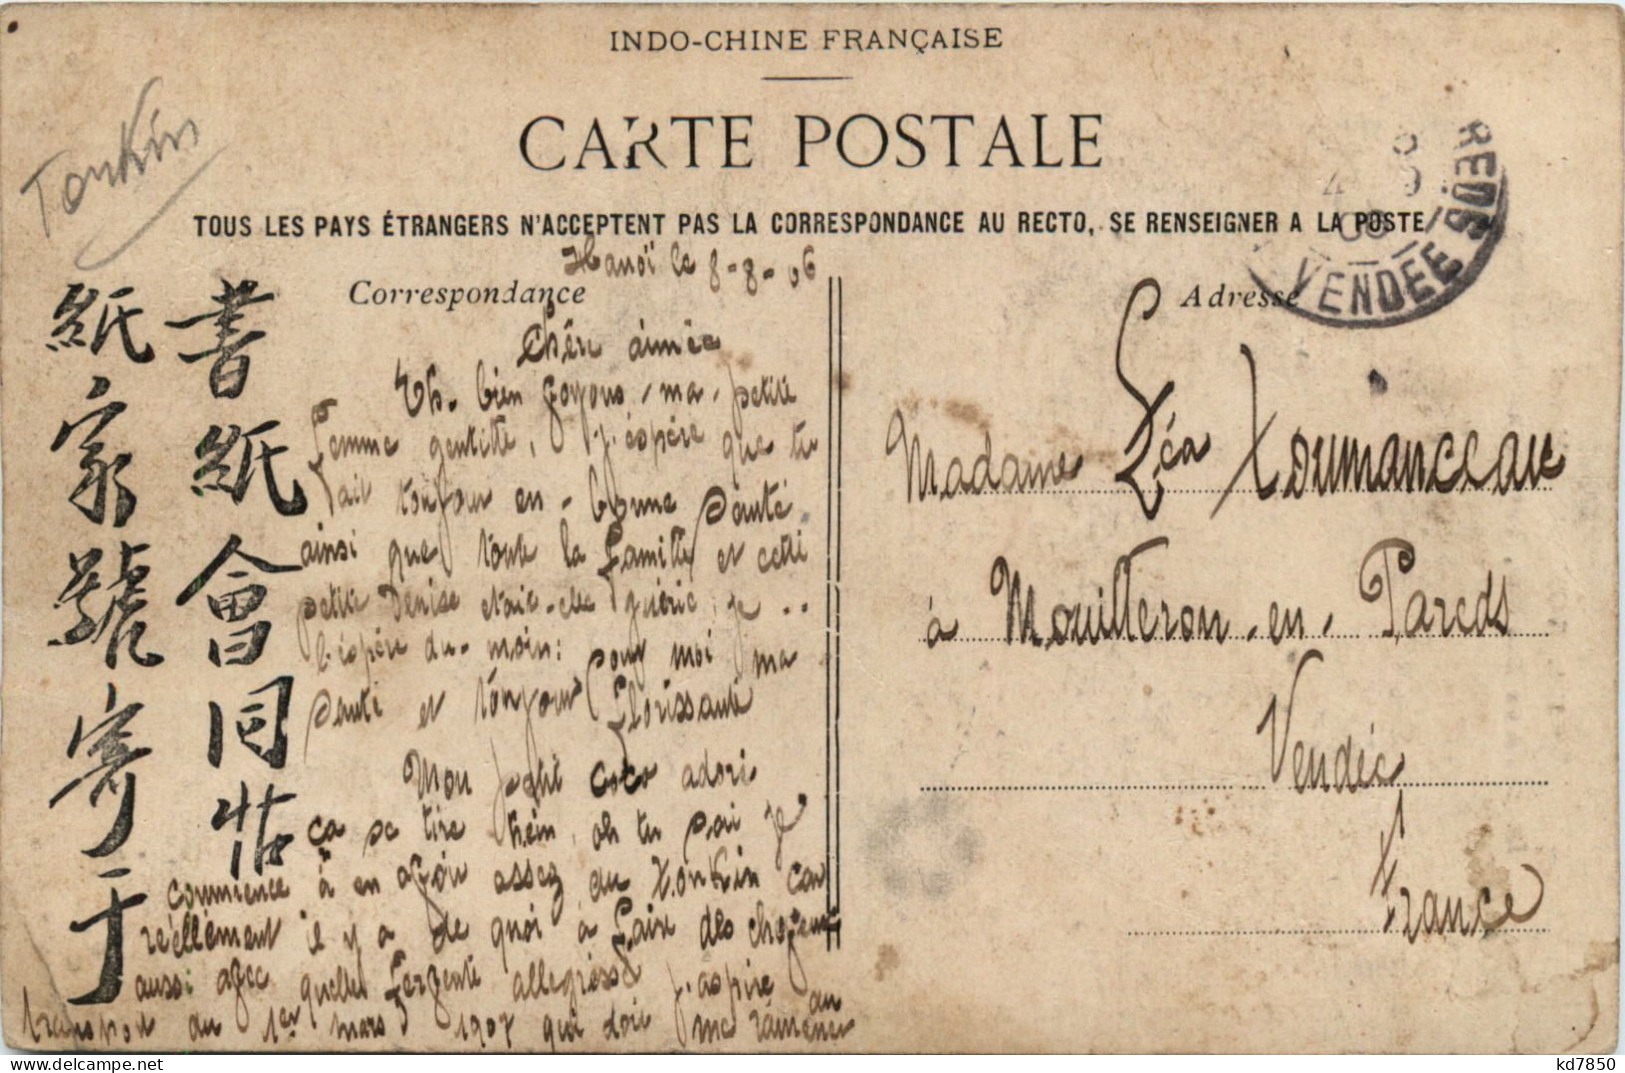 INDO-CHINE FRANÇAISE
CARTE POSTALE
TOUS LES PAYS ÉTRANGERS N'ACCEPTENT PAS LA CORRESPONDANCE AU RECTO, SE RENSEIGNER A LA POSTE
Tonkin
VENDÉE
Correspondance
Adresse
Hanoï le 8-8-06
Chère aimée
Eh. bien voyons, ma petite
femme gentille, j'éspère que tu
est toujour en bonne santé
ainsi que toute la famille et cette
petite Denise etait-elle guérie, je ..
l'éspère du moin: pour moi ma
santé et toujour florissante
Mon petit coco adoré
ça se tire hein, oh tu sai je
commence à en avoir assez du Tonkin car
réellement il y a de quoi à faire des cheveux
aussi avec quelle fervente allegresse j'aspire au
transport du 1er mars 1907 qui doit me ramener
書紙會同帖
紙家號寄于
Madame Léa Toumanceau
à Mouilleron-en-Pareds
Vendée
France
kd7850